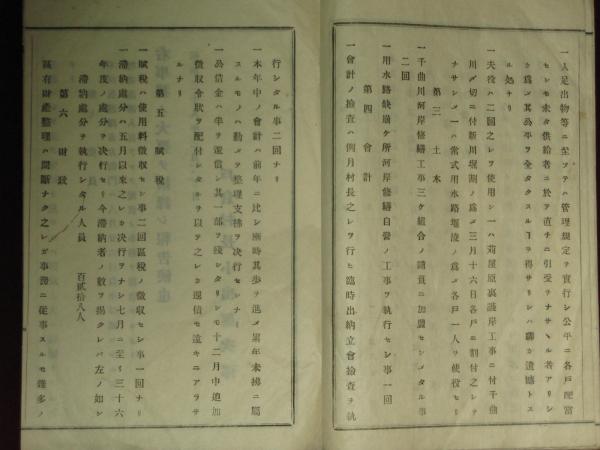 一人足出物等ニ至ツテハ管理規定ヲ實行シ公平ニ各戸配當
セシモ未タ供給者ニ於テ直チニ引受ヲナサヽル者アリシ
カ為メ其公平ヲ全タクスルヿヲ得サリシハ聊カ遺憾トス
ル処ナリ
一夫役ハ二回之レヲ使用シ一ハ苅屋原裏護岸工事ニ付千曲
川〆切ニ付新川堀割ノ為メ三月十六日各戸ニ割付之レヲ
ナサシメ一ハ常式用水路堰浚ノ為メ各戸一人ヲ使役セリ
第三 土木
一千曲川河岸修繕工事三ケ組合ノ請負ニ加盟セシメタル事
二回
一用水路缺崩ケ所河岸修繕自營ノ工事ヲ執行セシ事一回
第四 會計
一會計ノ檢査ハ例月村長之レヲ行ヒ臨時出納立會檢査ヲ執
行シタル事二回ナリ
一本年中ノ會計ハ前年ニ比シ漸時其歩ヲ進メ累年未拂ニ屬
スルモノハ勤メテ整理支拂ヲ决行セシナリ
一局借金ハ半ヲ還償シ其一部ヲ残シタリシモ十二月中追加
徴収令状ヲ配付シタルヲ以テ之レカ還償モ遠キニアラサ
ルナリ
第五 賦税
一賦税ハ使用料徴収セシ事二回區税ノ徴収セシ事一回ナリ
一滞納處分ハ五月以来之レカ决行ヲナシ七月ニ至リ三十六
年度ノ處分ヲ决行セリ今滞納者ノ數ヲ揭クレハ左ノ如シ
滞納處分ヲ執行シタル人員 百貳拾八人
第六 財政
區有財產整理ハ間斷ナク之レガ事務ニ従事スルモ錯多ノ